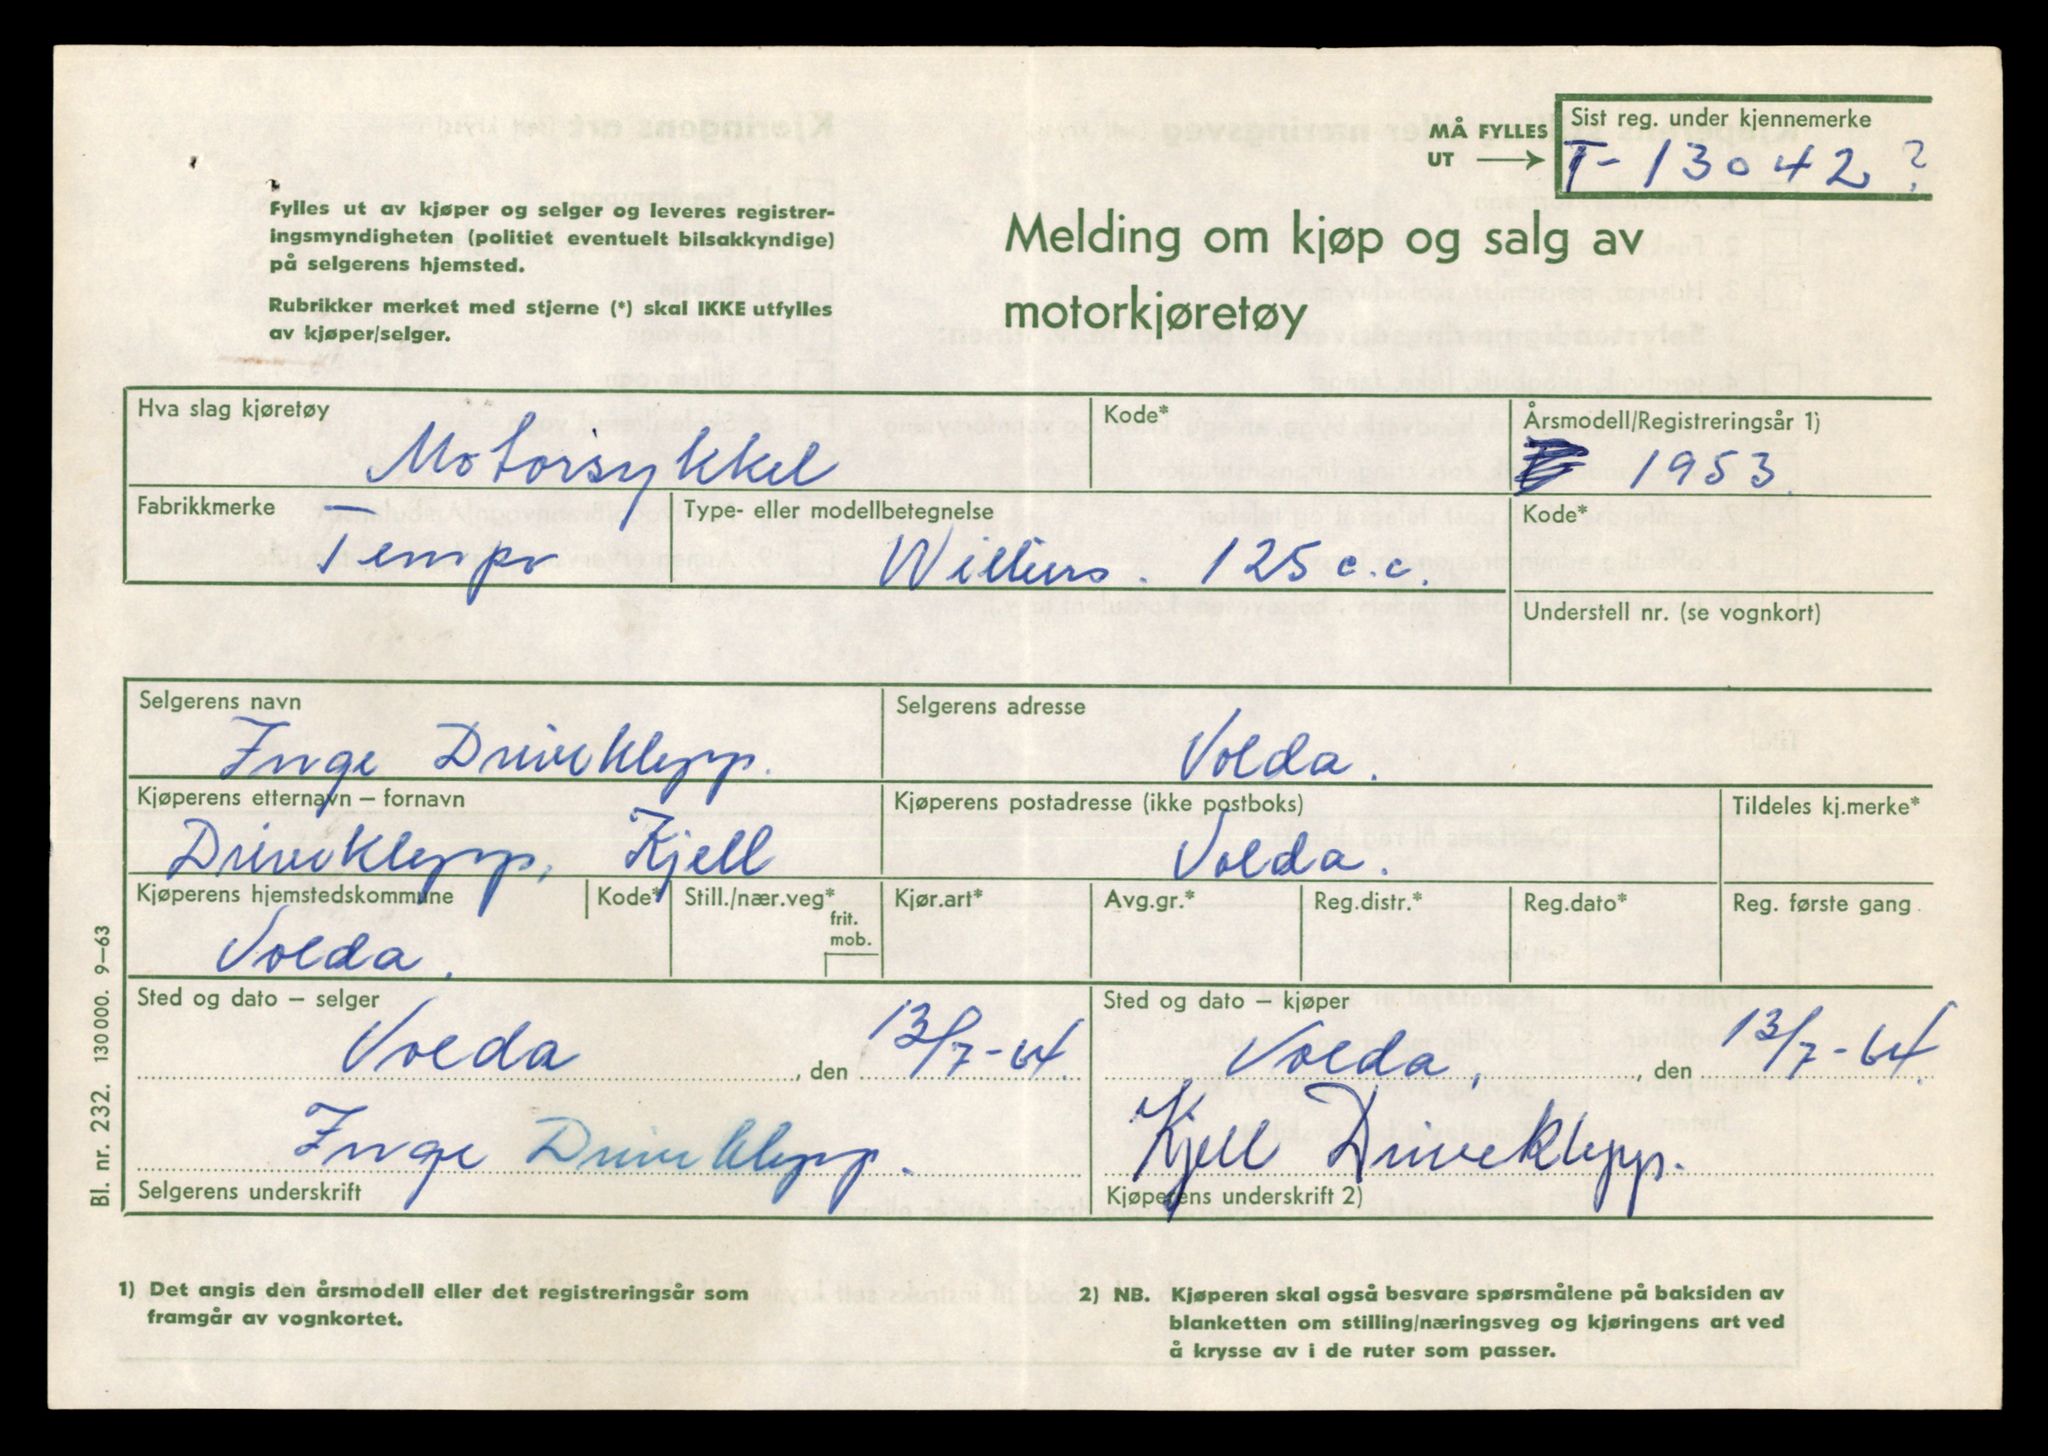 MÅ FYLLES UT
Sist reg. under kjennemerke
T-13042?
Fylles ut av kjøper og selger og leveres registrer-
ingsmyndigheten (politiet eventuelt bilsakkyndige)
på selgerens hjemsted.
Rubrikker merket med stjerne (*) skal IKKE utfylles
av kjøper/selger.
Melding om kjøp og salg av
motorkjøretøy
Hva slag kjøretøy
Motorsykkel
Kode*
Årsmodell/Registreringsår 1)
1953.
Fabrikkmerke
Tempo
Type- eller modellbetegnelse
Williers. 125 c.c.
Kode*
Understell nr. (se vognkort)
Selgerens navn
Inge Driveklepp.
Selgerens adresse
Volda.
Kjøperens etternavn – fornavn
Driveklepp, Kjell
Kjøperens postadresse (ikke postboks)
Volda.
Tildeles kj.merke*
Kjøperens hjemstedskommune
Volda.
Kode*
Still./nær.veg*
frit.
mob.
Kjør.art*
Avg.gr.*
Reg.distr.*
Reg.dato*
Reg. første gang
Sted og dato – selger
Volda, den 13/7-64.
Inge Driveklepp.
Selgerens underskrift
Sted og dato – kjøper
Volda, den 13/7-64.
Kjell Driveklepp.
Kjøperens underskrift 2)
Bl. nr. 232. 130 000. 9–63
1) Det angis den årsmodell eller det registreringsår som
framgår av vognkortet.
2) NB. Kjøperen skal også besvare spørsmålene på baksiden av
blanketten om stilling/næringsveg og kjøringens art ved
å krysse av i de ruter som passer.